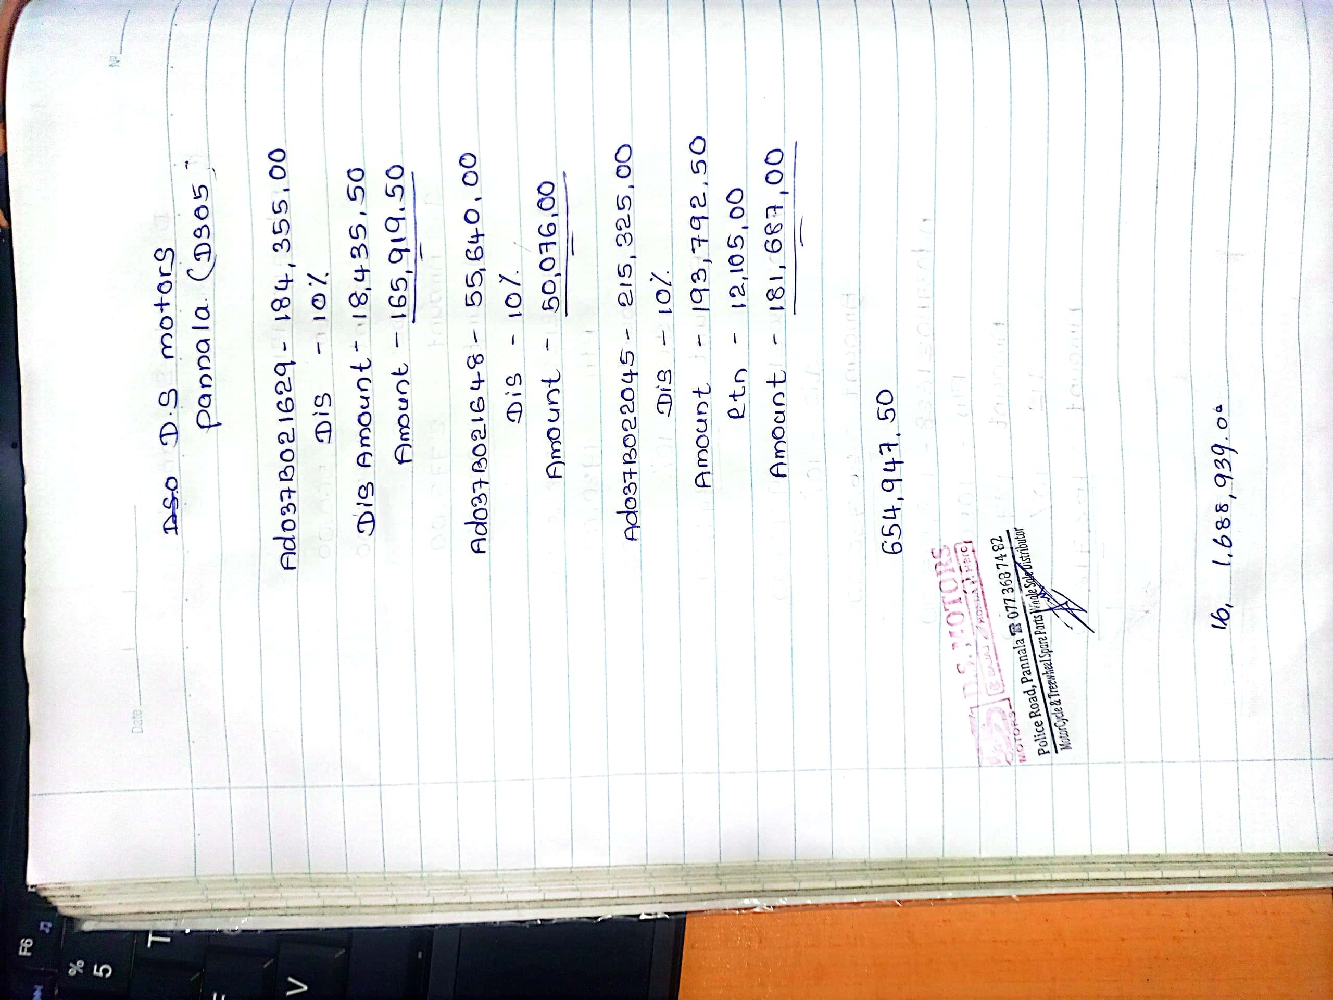 No
Date
DSO D.S motors
pannala (DS05)
Ad037B021629 - 184,355.00
Dis - 10%
Dis Amount - 18,435.50
Amount - 165,919.50
Ad037B021648 - 55,640.00
Dis - 10%
Amount - 50,076.00
Ad037B022045 - 215,325.00
Dis - 10%
Amount - 193,792.50
Rtn - 12,105.00
Amount - 181,687.00
654,947.50
D.S. MOTORS
MOTORS
Police Road, Pannala ☎ 077 368 7482
MotorCycle & Treewheel Spare Parts Whole Sale Distributor
1,688,939.00
F6
%
5
T
V